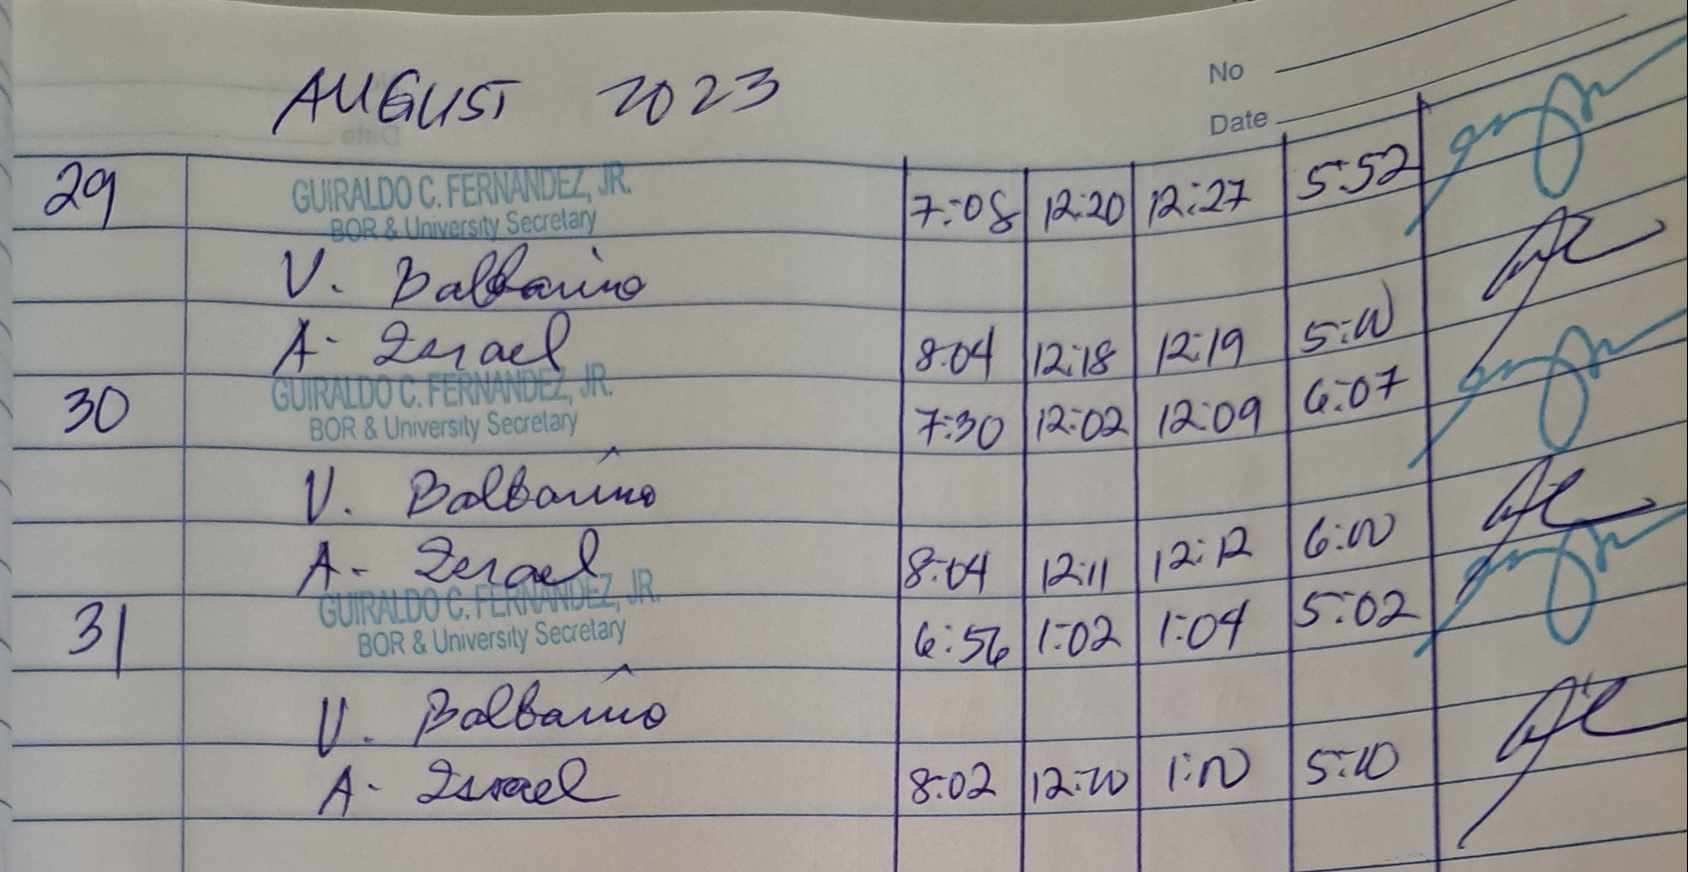 No
AUGUST 2023
Date
29 GUIRALDO C. FERNANDEZ, JR. 7:08 12:20 12:27 5:52
BOR & University Secretary
V. Balbarino
A. Israel 8:04 12:18 12:19 5:00
30 GUIRALDO C. FERNANDEZ, JR. 7:30 12:02 12:09 6:07
BOR & University Secretary
V. Balbarino
A. Israel 8:04 12:11 12:12 6:00
31 GUIRALDO C. FERNANDEZ, JR. 6:56 1:02 1:04 5:02
BOR & University Secretary
V. Balbarino
A. Israel 8:02 12:00 1:00 5:00